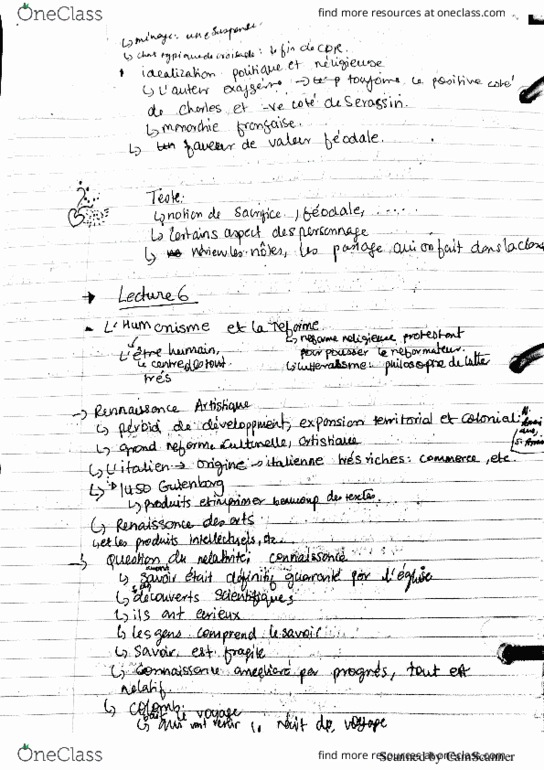 OneClass
find more resources at oneclass.com
↳ ménage: une suspense
↳ la fin de CDR.
idealization politique et réligieuse
↳ L'auteur exagère → toujours le positive coté
de Charles et -ve coté de Serassin.
↳ monarchie française.
↳ faveur de valeur féodale.
2.
Texte:
↳ notion de sacrifice, féodale, .....
↳ Certains aspect des personnage
↳ review les nôtes, les passage qui on fait dans la
→ Lecture 6
- L'Humanisme et la réforme.
↳ réforme religieuse, protestant
pour pousser le reformateur.
L'être humain,
le centre de tout
très
↳ lutteralisme: philosophe de
→ Rennaissance Artistique
↳ périod de développment, expansion territorial et colonial:
↳ grand réforme culturelle, artistique
↳ L'italien → origine → italienne très riches: commerce, etc.
↳ 1450 Gutenborg
↳ produits et imprimer beaucoup des textes.
↳ Renaissance des arts
↳ et les produits intellectuels, etc.
→ Question du relativité, connaissance
↳ savoir était définitif, guaranté par l'église
↳ découverts scientifiques
↳ ils ont
↳ les gens comprend le savoir
↳ Savoir est fragile
↳ connaissance amélioré par progrés, tout est
relatif.
↳ Colomb:
fait le voyage
↳ qui vont venir récit de voyage
OneClass
find more resources at oneclass.com
Scanned by CamScanner